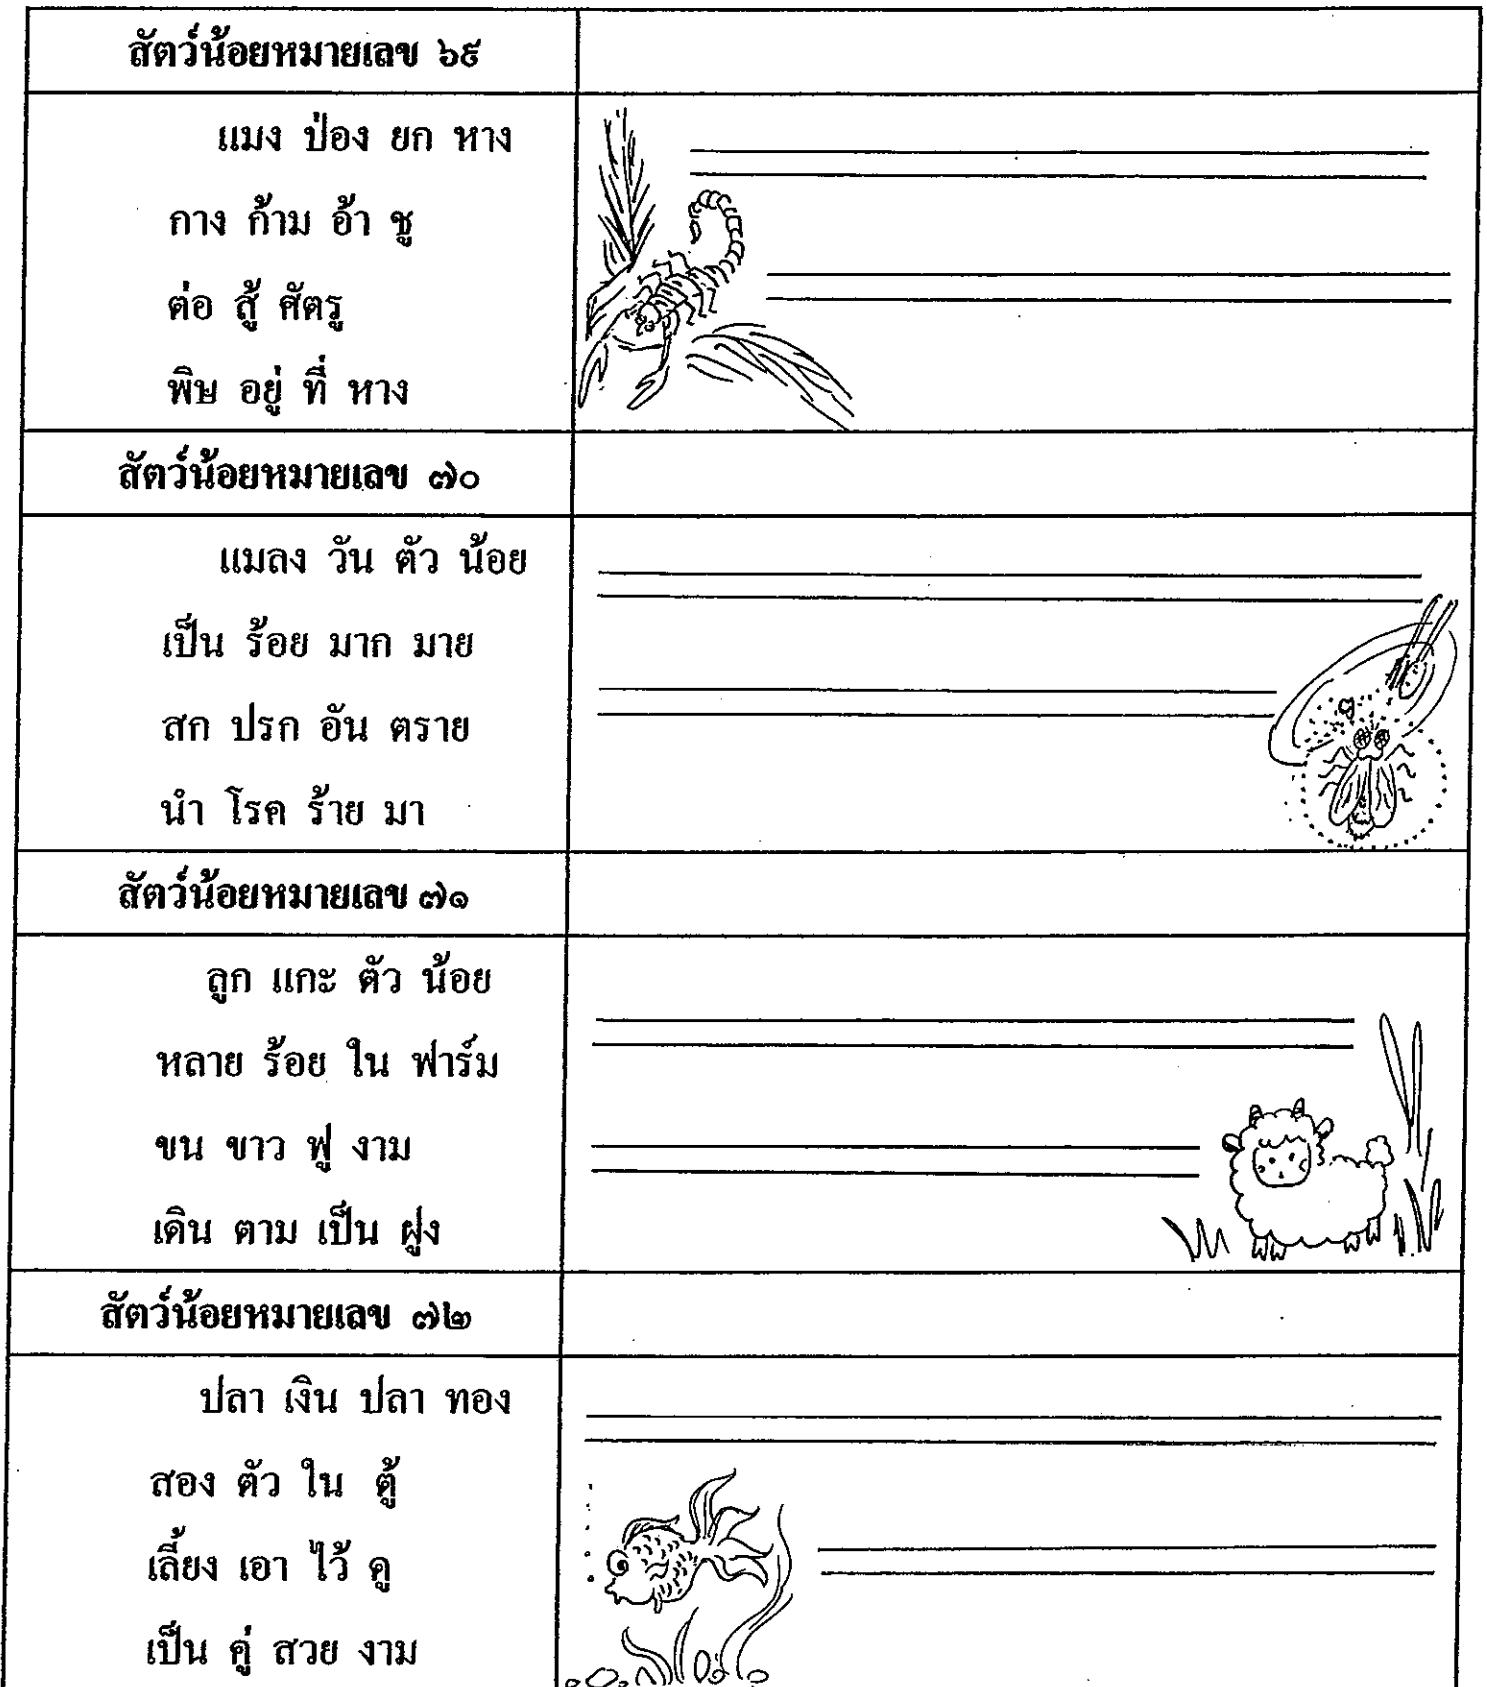 สัตว์น้อยหมายเลข ๖๙
แมง ป่อง ยก หาง
กาง ก้าม อ้า ชู
ต่อ สู้ ศัตรู
พิษ อยู่ ที่ หาง
สัตว์น้อยหมายเลข ๗๐
แมลง วัน ตัว น้อย
เป็น ร้อย มาก มาย
สก ปรก อัน ตราย
นำ โรค ร้าย มา
สัตว์น้อยหมายเลข ๗๑
ลูก แกะ ตัว น้อย
หลาย ร้อย ใน ฟาร์ม
ขน ขาว ฟู งาม
เดิน ตาม เป็น ฝูง
สัตว์น้อยหมายเลข ๗๒
ปลา เงิน ปลา ทอง
สอง ตัว ใน ตู้
เลี้ยง เอา ไว้ ดู
เป็น คู่ สวย งาม